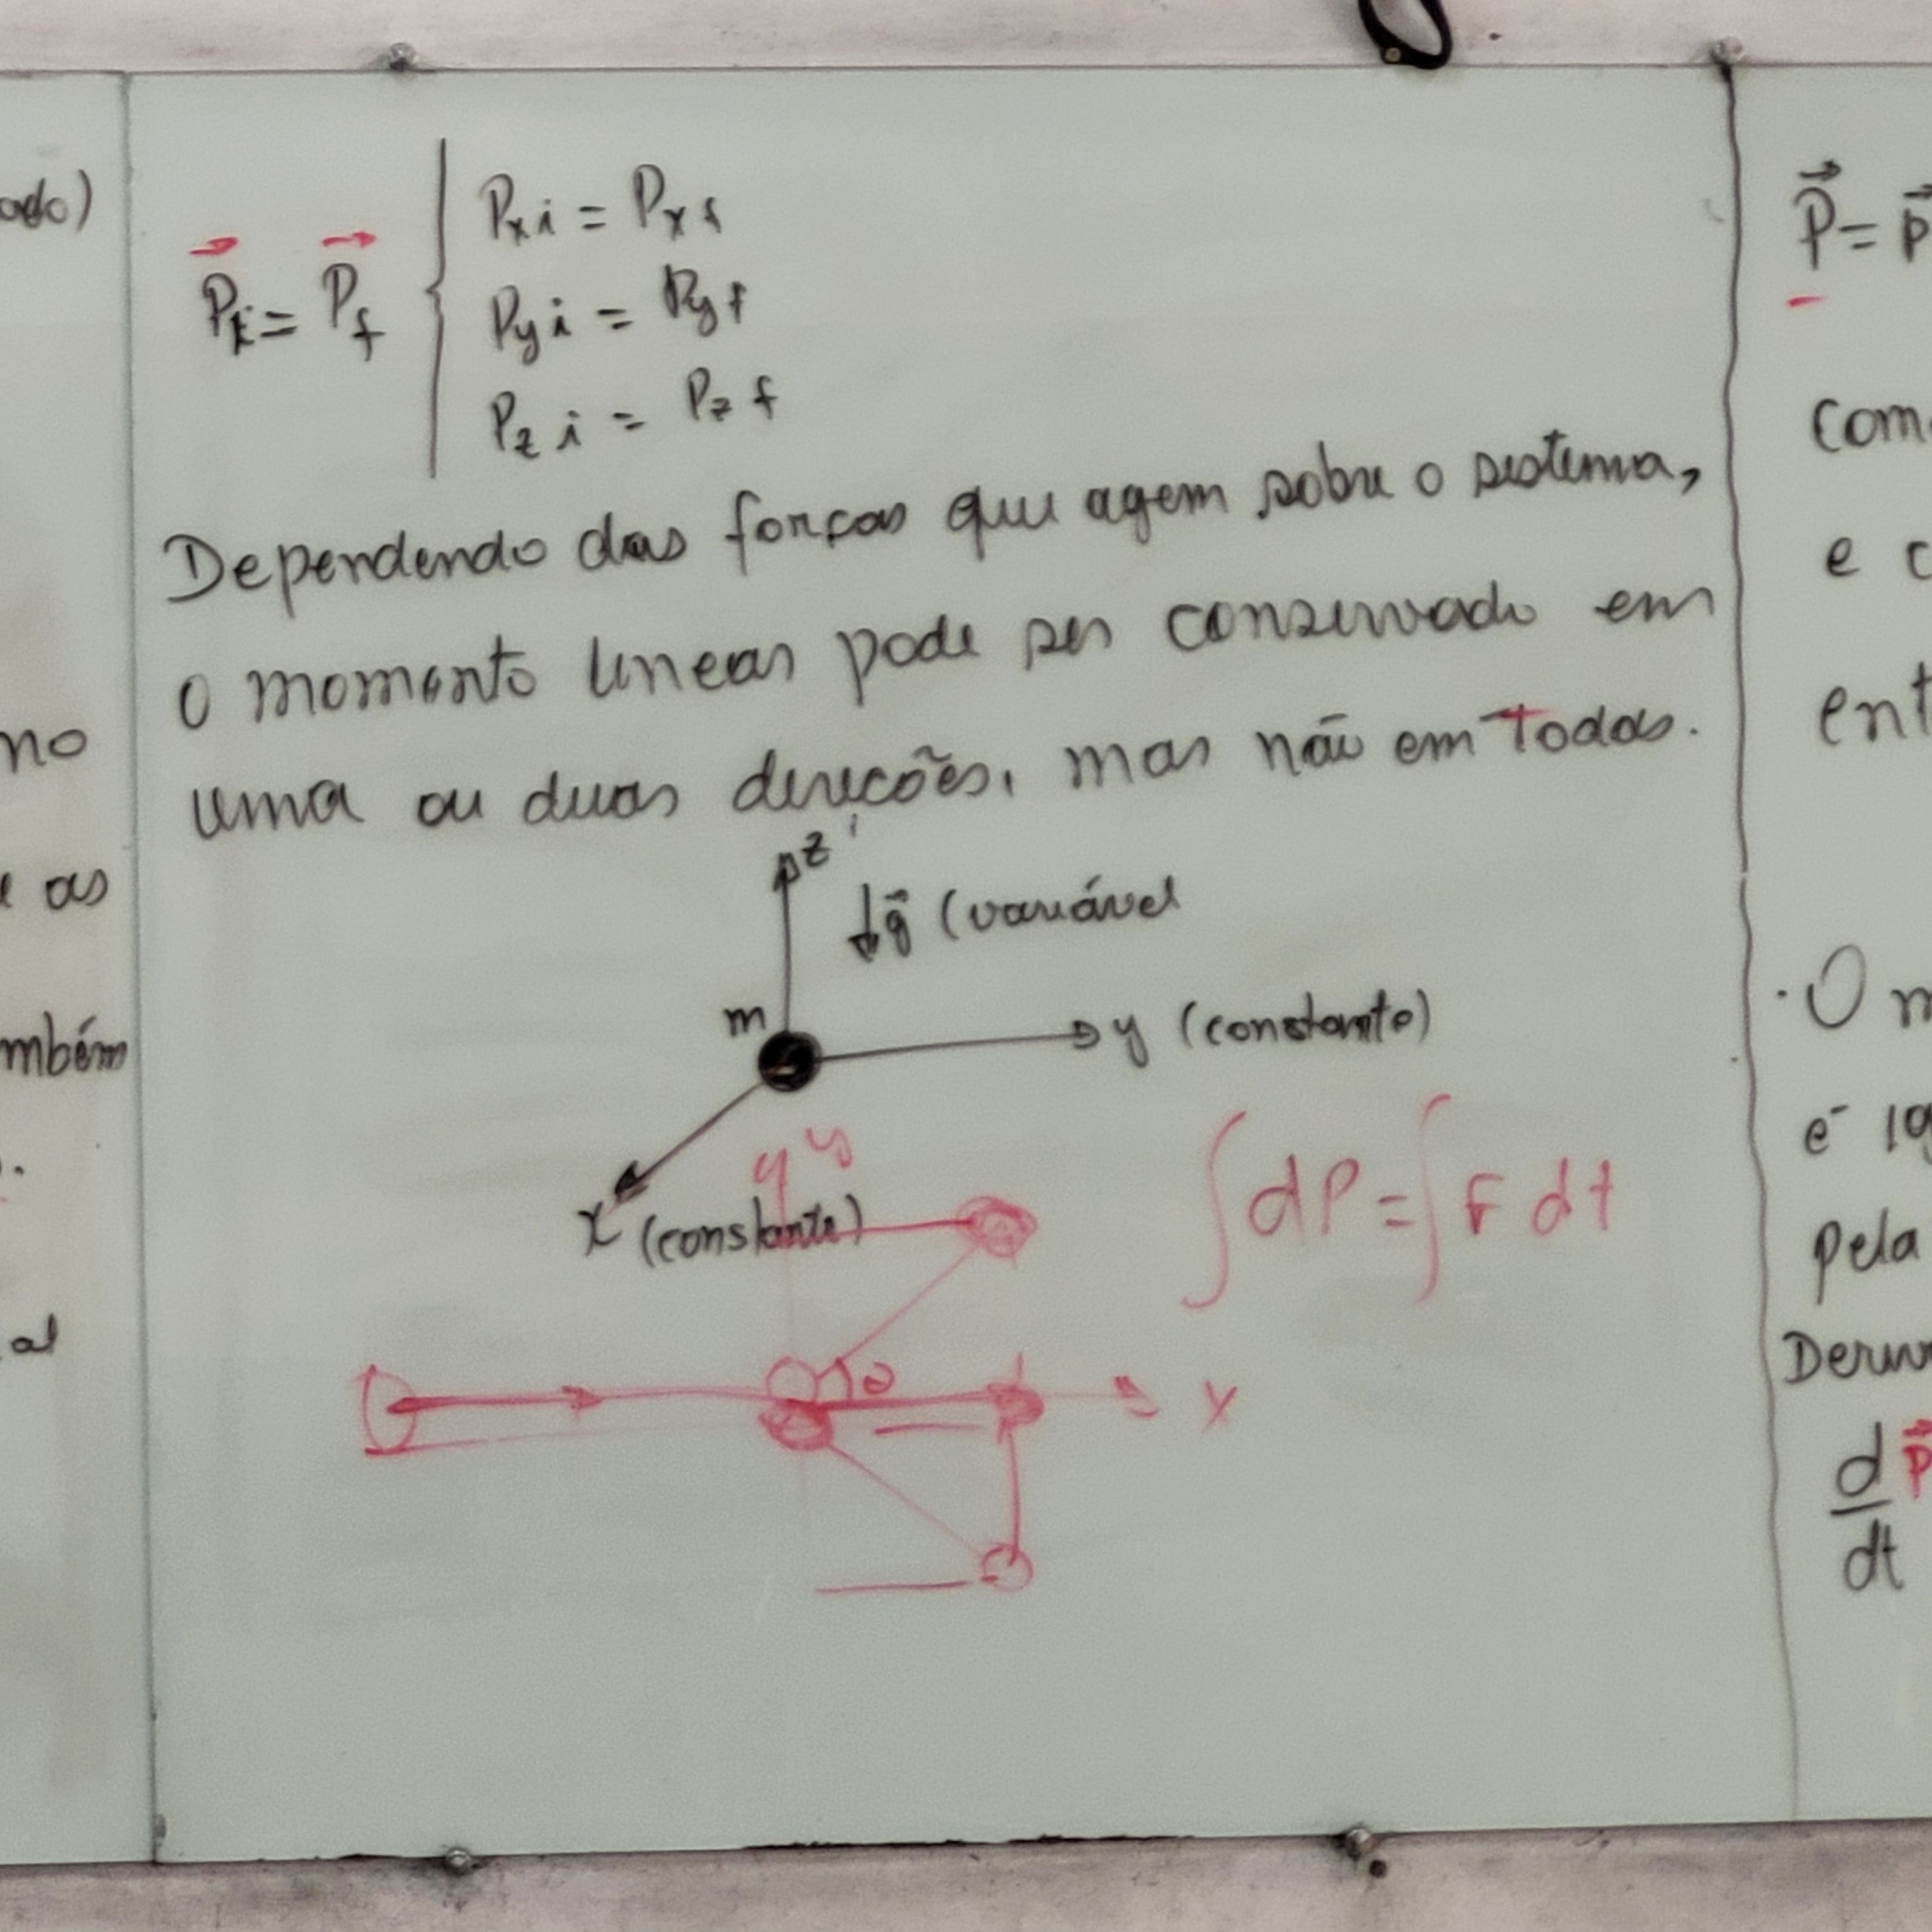 ado)
no
e as
ambém
al
P⃗i = P⃗f { Pxi = Pxf
Pyi = Pyf
Pzi = Pzf
Dependendo das forças que agem sobre o sistema,
o momento linear pode ser conservado em
uma ou duas direções, mas não em todas.
z
↓g⃗ (variável
m
y (constante)
x (constante)
y
∫dP = ∫F dt
θ
x
P⃗ = P⃗
com
e c
ent
. O m
é ig
pela
Deriv
d P⃗
dt